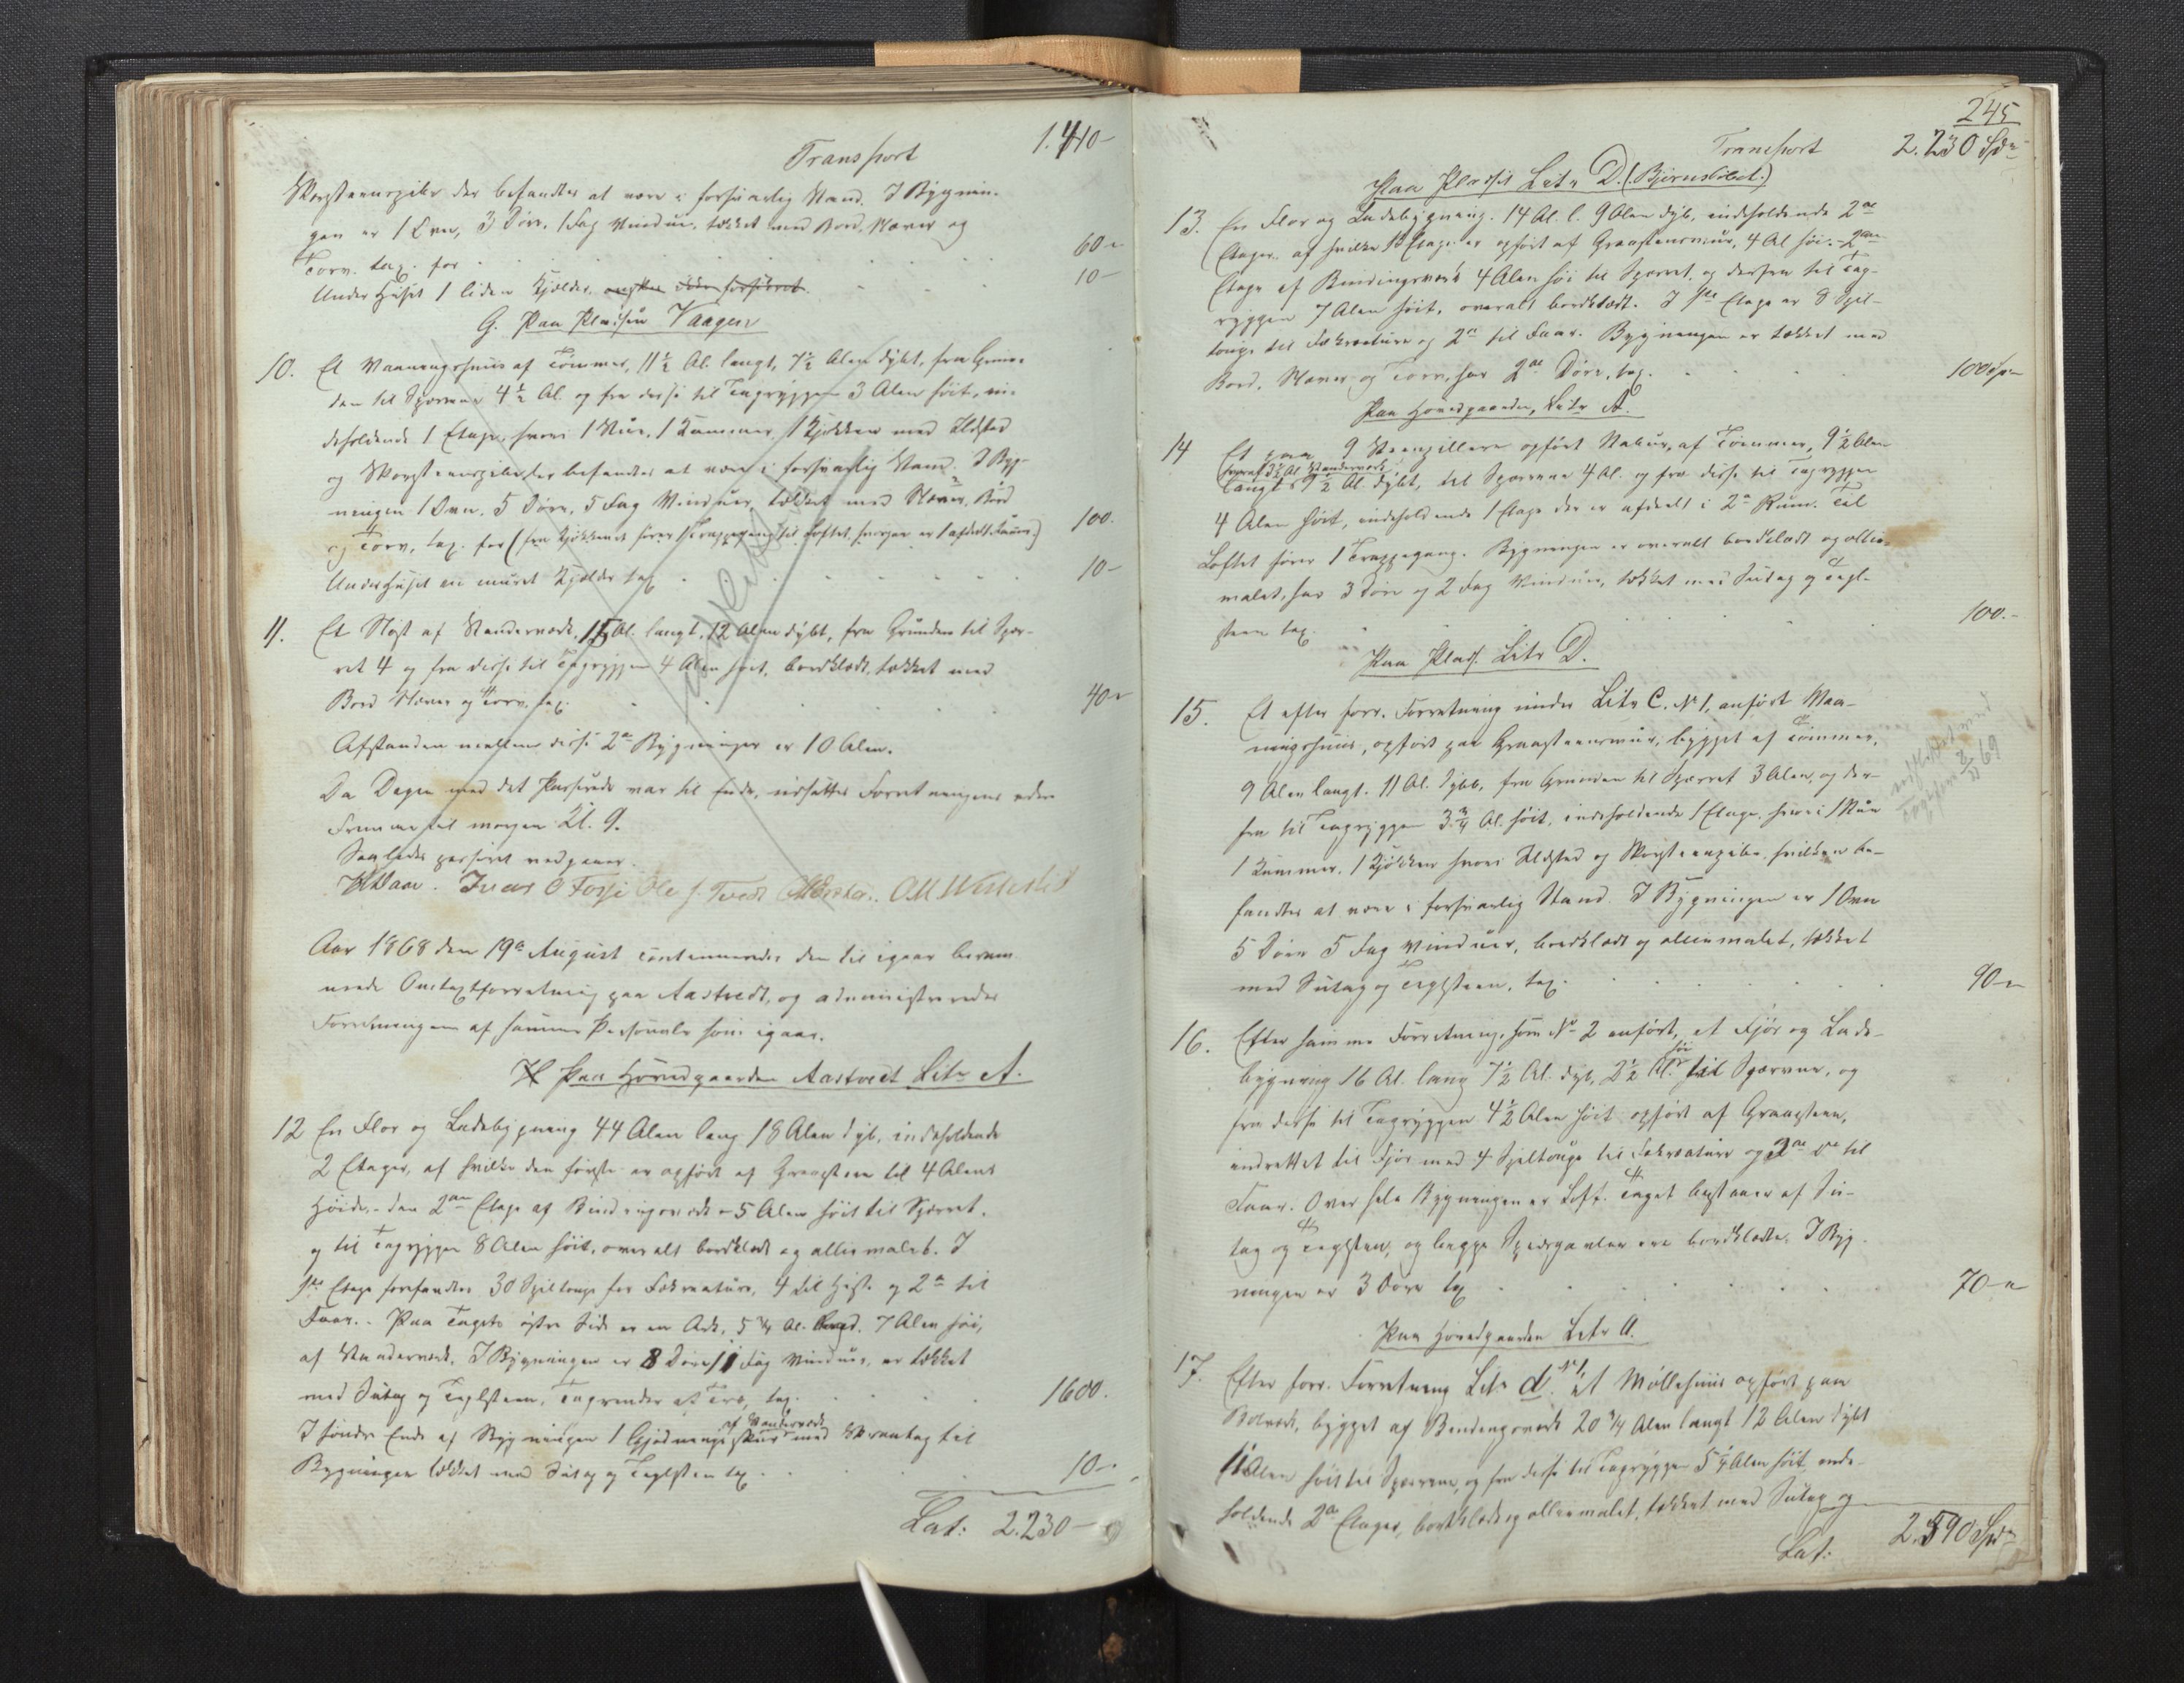 Transport 1.410-
Skorsteenspibe der befandtes at være i forsvarlig Stand. I Bygnin-
gen er 1 Ovn, 3 Døre, 1 Fag Vinduer, tækket med Bord, Næver og
Torv. tax. for 60 -
Under Huset 1 liden Kjelder 10 -
G. Paa Pladsen Vaagen
10. Et Vaaningshuus af Tømmer, 11½ Al. langt, 7½ Alen dybt, fra Grun-
den til Sperrene 4½ Al. og fra disse til Tagryggen 3 Alen høit, in-
deholdende 1 Etage, hvori 1 Stue, 1 Kammer, 1 Kjøkken med Ildsted
og Skorsteenspibe der befandtes at være i forsvarlig Stand. I Byg-
ningen 1 Ovn, 5 Døre, 5 Fag Vinduer, tækket med Næver, Bord
og Torv, tax. for (fra Kjøkkenet fører 1 Trappegang til Loftet, hvorpaa er 1 afdeelt Kammer) 100.
Under Huset en muret Kjelder tax 10 -
11. Et Nøst af Standerværk, 15 Al. langt, 12 Alen dybt, fra Grunden til Sper-
ret 4 og fra disse til Tagryggen 4 Alen høit, bordklædt, tækket med
Bord Næver og Torv, tax. 40 -
Afstanden mellem disse 2de Bygninger er 10 Alen.
Da Dagen med det Passerede var til Ende, udsattes Forretningens videre
Fremme til morgen Kl. 9.
Saaledes passeret vedgaaer.
Ivar O Fosse Ole J. Tvedt
Aar 1868 den 19de August continueredes den til igaar beram-
mede Omtaxtforretning paa Aastvedt, og administreredes
Forretningen af samme Personale som igaar.
H Paa Hovedgaarden Aastvedt Litr A.
12 En Flor og Ladebygning 44 Alen lang 18 Alen dyb, indeholdende
2 Etager, af hvilke den første er opført af Graasteen til 4 Alens
Høide, - den 2den Etage af Bindingsverk - 5 Alen høit til Sperret,
og til Tagryggen 8 Alen høit, overalt bordklædt og olliemalet. I
1ste Etage forefandtes 30 Spiltouge for Fækreature, 4 til Heste og 2de til
Faar. - Paa Tagets østre Side er en Ark, 5¼ Al. bred, 7 Alen høi,
af Standerværk. I Bygningen er 8 Døre 11 Fag Vinduer, er tækket
med Sutag og Teglsteen, Tagrender af Træ, tax. 1600.
I søndre Ende af Bygningen 1 Gjødningsskuur af Standerværk med Skraatag til
Bygningen tækket med Sutag og Teglsteen tax. 10 -
Lat: 2.230 -
245
Transport 2.230 Spd
Paa Pladsen Litr D. (Bjørneslæet.)
13. En Flor og Ladebygning. 14 Al. l. 9 Alen dyb, indeholdende 2de
Etager, af hvilke 1ste Etage er opført af Graasteensmuur, 4 Al høi. - 2den
Etage af Bindingsværk 4 Alen høi til Sperret, og derfra til Tag-
ryggen 7 Alen høit, overalt bordklædt. I 1ste Etage er 8 Spil-
touge til Fækreature og 2de til Faar. Bygningen er tækket med
Bord, Næver og Torv, har 2de Døre, tax. 100 Spd
Paa Hovedgaarden, Litr A.
14 Et paa 9 Steenpillere opført Stabur, af Tømmer, 9½ Alen
hvoraf 3½ Al Standerværk
langt 9½ Al. dybt, til Sperrene 4 Al. og fra disse til Tagryggen
4 Alen høit, indeholdende 1 Etage der er afdeelt i 2de Rum. Til
Loftet fører 1 Trappegang. Bygningen er overalt bordklædt og ollie-
malet, har 3 Døre og 2 Fag Vinduer, tækket med Sutag og Tegl-
steen tax. 100.-
Paa Plads. Litr D.
15. Et efter forr. Forretning under Litr C. No 1, anført Vaa-
ningshuus, opført paa Graasteensmuur, bygget af Tømmer,
9 Alen langt. 11 Al. dybt, fra Grunden til Sperret 3 Alen, og der-
fra til Tagryggen 3¾ Al. høit, indeholdende 1 Etage, hvori 1 Stue
1 Kammer, 1 Kjøkken hvori Ildsted og Skorsteenspibe, hvilken be-
fandtes at være i forsvarlig Stand. I Bygningen er 1 Ovn
5 Døre 5 Fag Vinduer, bordklædt og olliemalet, tækket
med Sutag og Teglsteen, tax. 90 -
16. Efter samme Forretning, som No 2 anført, et Fjøs og Lade-
bygning 16 Al. lang 7½ Al. dyb, 2½ Al. høi til Sperrene, og
fra disse til Tagryggen 4½ Alen høit opført af Graasteen,
indrettet til Fjøs med 4 Spiltouge til Fækreature og 2de do til
Faar. Over hele Bygningen er Loft. Taget bestaaer af Su-
tag og Teglsteen, og begge Spidsgavlene ere bordklædte. I Byg-
ningen er 3 Døre tax 70 -
Paa Hovedgaarden Litr A.
17. Efter forr. Forretning Litr d. No 1, et Møllehuus opført paa
Bolværk, bygget af Bindingsverk 20¾ Alen langt 12 Alen dybt
11 Alen høit til Sperrene, og fra disse til Tagryggen 5¼ Alen høit, inde-
holdende 2de Etager, bordklædt og olliemalet, tækket med Sutag og
Lat: 2.590 Spd